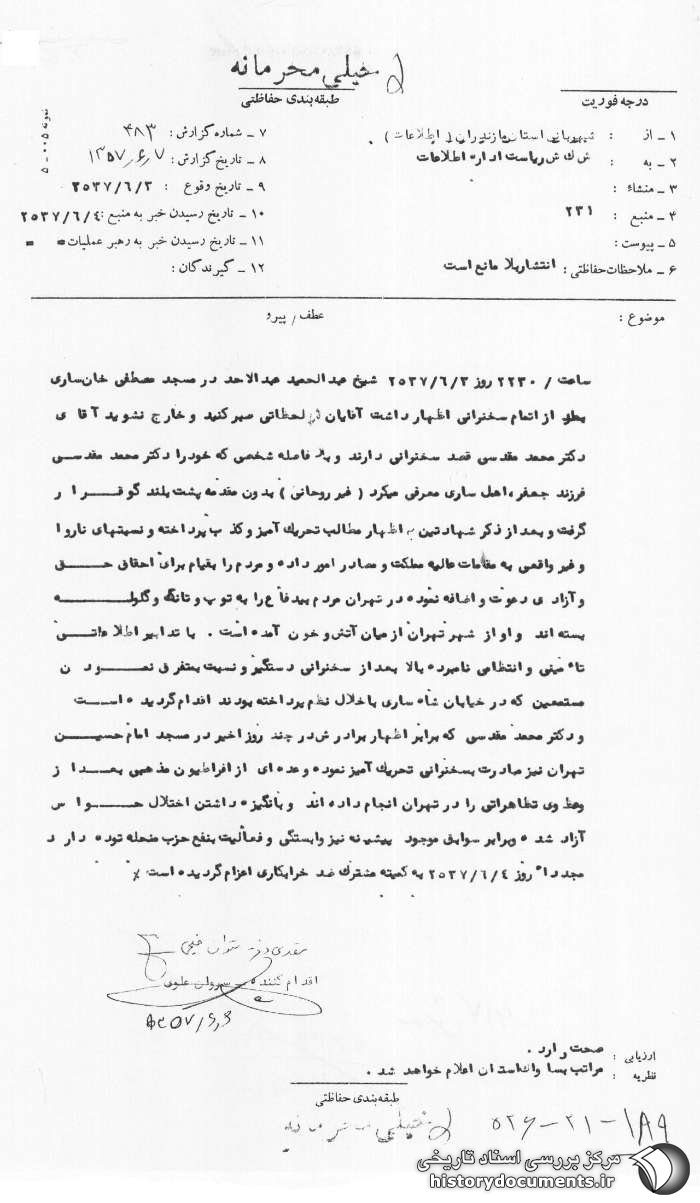 خیلی محرمانه
طبقه‌بندی حفاظتی
درجه فوریت
نمونه ۰۰۵ - ۵
۱ - از : شهربانی استان مازندران ( اطلاعات )
۲ - به : ش ك ش ریاست اداره اطلاعات
۳ - منشاء :
۴ - منبع : ۲۳۱
۵ - پیوست :
۶ - ملاحظات حفاظتی : انتشار بلا مانع است
۷ - شماره گزارش : ۴۸۳
۸ - تاریخ گزارش : ۱۳۵۷/۶/۷
۹ - تاریخ وقوع : ۲۵۳۷/۶/۳
۱۰ - تاریخ رسیدن خبر به منبع : ۲۵۳۷/۶/۴
۱۱ - تاریخ رسیدن خبر به رهبر عملیات = =
۱۲ - گیرندگان :
موضوع : عطف / پیرو
ساعت / ۲۲۳۰ روز ۲۵۳۷/۶/۳ شیخ عبدالحمید عبدالاحد در مسجد مصطفی خان ساری
از اتمام سخنرانی اظهار داشت آقایان لحظاتی صبر کنید و خارج نشوید آقا ی
دکتر محمد مقدسی قصد سخنرانی دارند و بلا فاصله شخصی که خود را دکتر محمد مقدســی
فرزند جعفر ، اهل ساری معرفی میکرد ( غیر روحانی ) بدون مقدمه پشت بلند گو قـــرا ر
گرفت و بعد از ذکر شهادتین به اظهار مطالب تحریك آمیز و کذ ب پرداخته و نسبتهای ناروا
و غیر واقعی به مقامات عالیه مملکت و مصادر امور داده و مردم را بقیام برای احقاق حـــق
و آزاد ی دعوت و اضافه نموده در تهران مردم بیدفاع را به توپ و تانگ و گلولـــه
بسته اند و او از شهر تهران از میان آتش و خون آمده است . با تدابیر اطلاعاتــی
تاء مینی و انتظامی نامبرده بالا بعد از سخنرانی دستگیر و نسبت بمتفرق نمـــود ن
مستمعین که در خیابان شاه ساری باخلال نظم پرداخته بودند اقدام گردید ه اســـت
و دکتر محمد مقدسی که برابر اظهار برادر ش در چند روز اخیر در مسجد امام حسیـــن
تهران نیز مبادرت بسخنرانی تحریك آمیز نموده وعده ای از افراطیون مذهبی بعـــد ا ز
وعظ وی تظاهراتی را در تهران انجام داده اند و بانگیزه داشتن اختلال حـــوا س
آزاد شد ه وبرابر سوابق موجود پیشینه نیز وابستگی و فعالیت بنفع حزب منحله توده دار د
مجدداً روز ۲۵۳۷/۶/۴ به کمیته مشترك ضد خرابکاری اعزام گردیده است ٪
اقدام کننده - سروان علوی
ارزیابی : صحت دارد .
نظریه : مراتب بساواك استان اعلام خواهد شد .
طبقه‌بندی حفاظتی
خیلی محرمانه
۵۲۶-۲۱-۱۸۹
مرکز بررسی اسناد تاریخی
historydocuments.ir